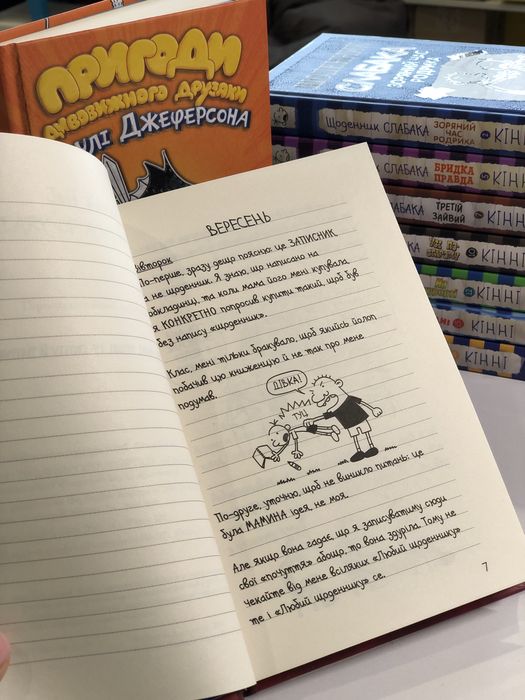 ПРИГОДИ
ДИВОВИЖНОГО ДРУЗЯКИ
ДЖЕФЕРСОНА
СЛАБАКА
Щоденник СЛАБАКА ЗОРЯНИЙ ЧАС РОДРИКА КІННІ
СЛАБАКА БРИДКА ПРАВДА КІННІ
СЛАБАКА ТРЕТІЙ ЗАЙВИЙ КІННІ
КІННІ
КІННІ
КІННІ
КІННІ
ВЕРЕСЕНЬ
По-перше, зразу дещо поясню: це ЗАПИСНИК,
а не щоденник. Я знаю, що написано на
обкладинці, та коли мама його мені купувала,
я КОНКРЕТНО попросив купити такий, щоб був
без напису «щоденник».
Клас, мені тільки бракувало, щоб якийсь йолоп
побачив цю книженцію й не так про мене
подумав.
ДІВКА!
ТУЦ
По-друге, уточню, щоб не виникло питань: це
була МАМИНА ідея, не моя.
Але якщо вона гадає, що я записуватиму сюди
свої «почуття» абощо, то вона здуріла. Тому не
чекайте від мене всіляких «Любий щоденнику»
те і «Любий щоденнику» се.
7